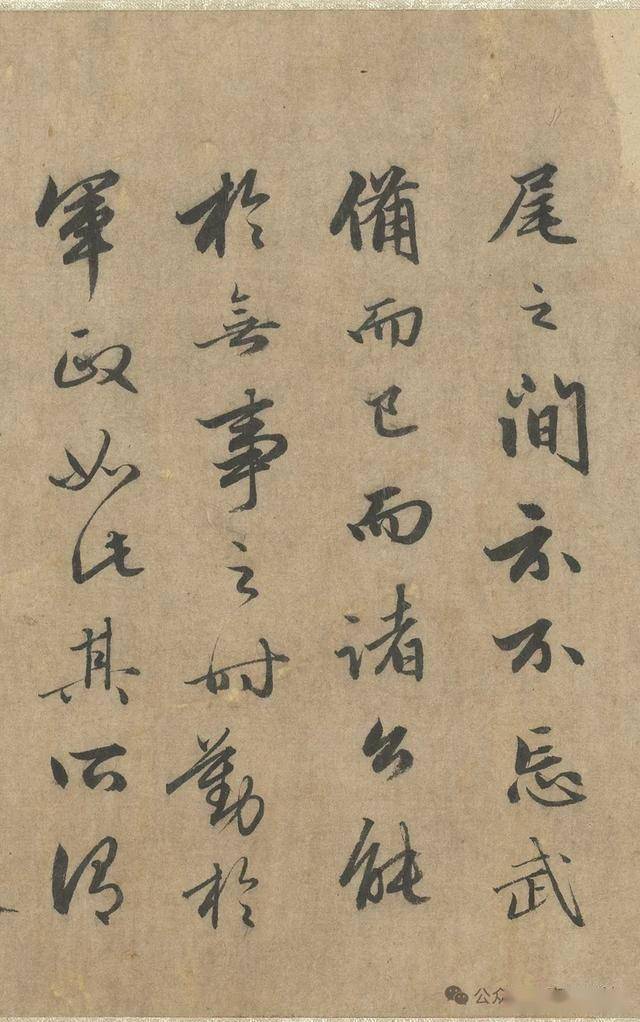 尾之間示不忘武
備而已而諸公能
於無事之時勤於
軍政如此其所謂
公众